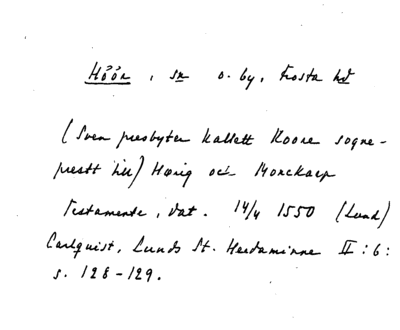 Höör, sn o. by, Frosta hd
(Sven presbyter kallett Koore sogne-
prestt till) Hörig och Monckarp
Testamente, dat. 14/4 1550 (Lund)
Carlquist, Lunds St. Herdaminne II:6:
s. 128-129.